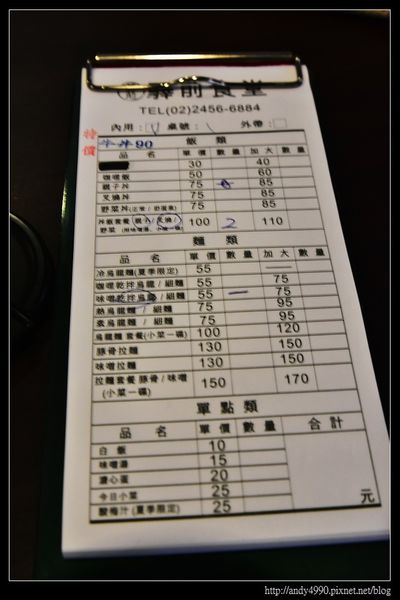 驛前食堂
TEL(02)2456-6884
內用：V 桌號：\ 外帶：□
特價
牛丼90
飯 類
品 名 單價 數量 加大 數量
30 40
咖哩飯 50 60
親子丼 75 85
叉燒丼 75 85
野菜丼 75 85
丼飯套餐 親子／叉燒／ 100 2 110
野菜
麵 類
品 名 單價 數量 加大 數量
冷烏龍麵(夏季限定) 55
咖哩乾拌烏龍／細麵 55 75
味噌乾拌烏龍／細麵 55 一 75
熱烏龍麵／細麵 75 95
素烏龍麵／細麵 75 95
烏龍麵套餐(小菜一碟) 100 120
豚骨拉麵 130 150
味噌拉麵 130 150
拉麵套餐 豚骨／味噌 150 170
(小菜一碟)
單點類
品 名 單價 數量 合計
白飯 10
味噌湯 15
溏心蛋 20
今日小菜 25
酸梅汁(夏季限定) 25
元
http://andy4990.pixnet.net/blog